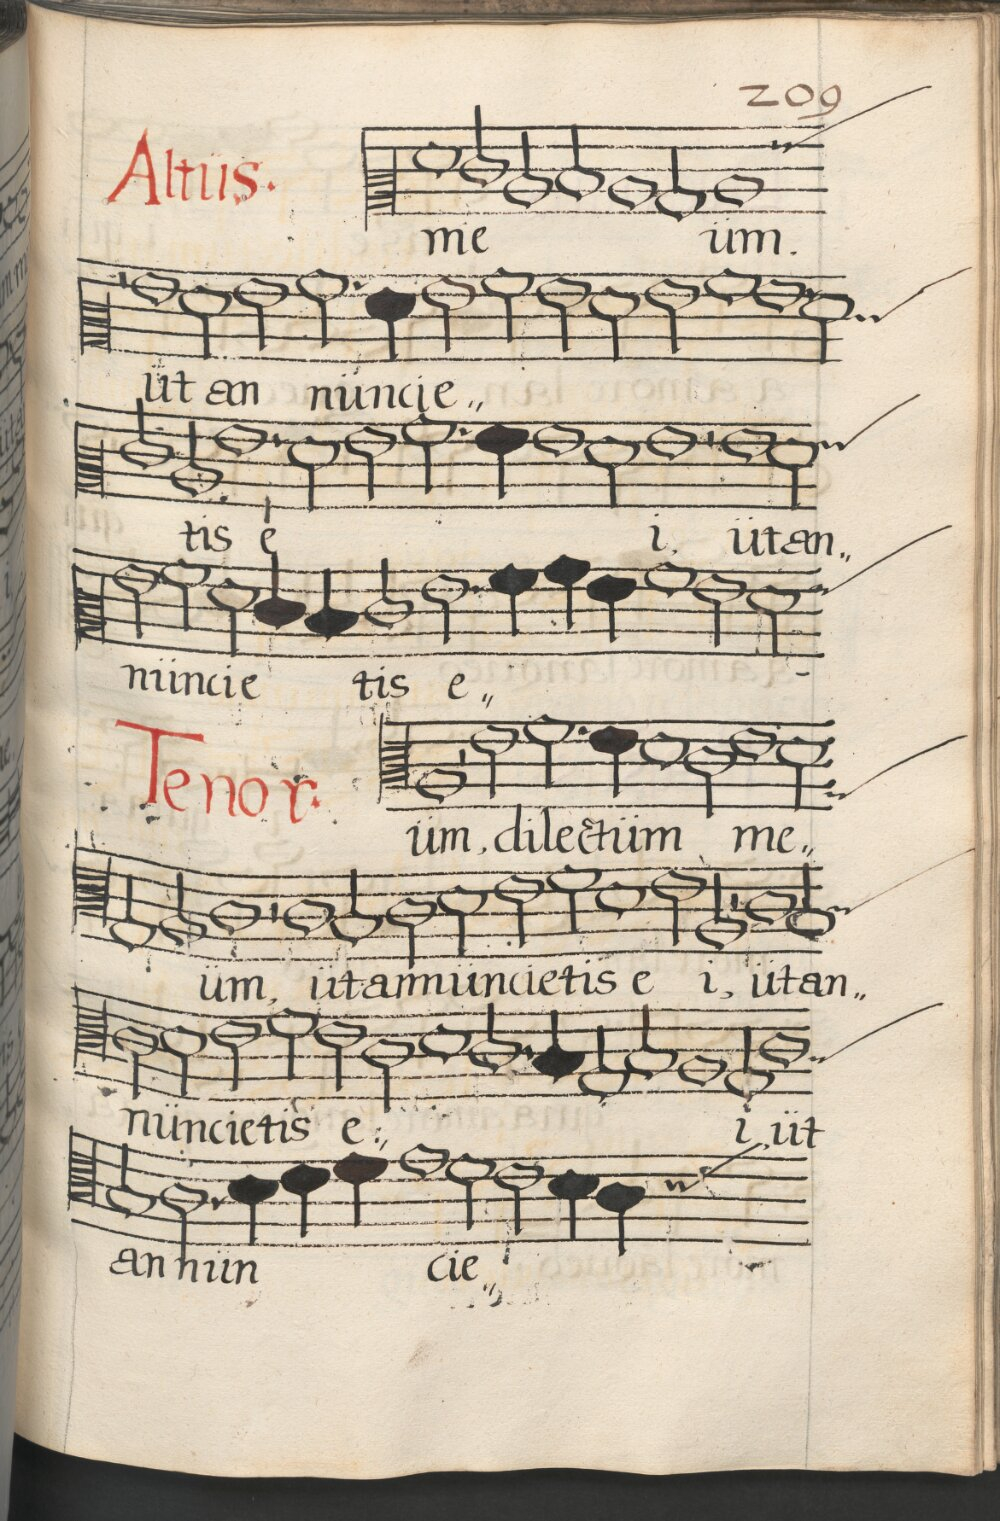 209
Altüs.
me üm.
üt an nüncie„
tis e i, üt an„
nüncie tis e„
Tenor.
üm, dilectüm me„
üm, üt annüncietis e i, üt an„
nüncietis e„ i, üt
an nün cie„